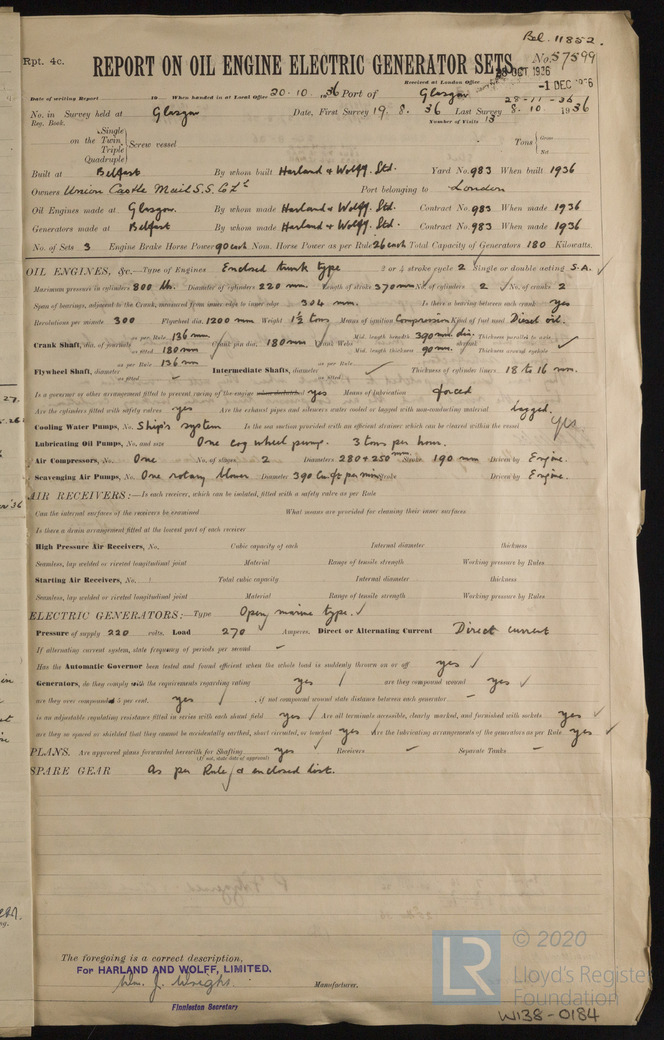 Bel. 11852.
Rpt. 4c.
REPORT ON OIL ENGINE ELECTRIC GENERATOR SETS.
No. 57599
28 OCT 1936
Received at London Office
-1 DEC 1936
Date of writing Report 19 When handed in at Local Office 20.10.36 Port of Glasgow
28-11-36
No. in Survey held at Glasgow Date, First Survey 19.8.36 Last Survey 8.10.1936
Reg. Book. Number of Visits 13
Single
on the Twin Screw vessel Tons Gross
Triple Net
Quadruple
Built at Belfast By whom built Harland & Wolff, Ltd. Yard No. 983 When built 1936
Owners Union Castle Mail S.S. Co Ld Port belonging to London
Oil Engines made at Glasgow. By whom made Harland & Wolff, Ltd. Contract No. 983 When made 1936
Generators made at Belfast By whom made Harland & Wolff, Ltd. Contract No. 983 When made 1936
No. of Sets 3 Engine Brake Horse Power 90 each Nom. Horse Power as per Rule 26 each Total Capacity of Generators 180 Kilowatts.
OIL ENGINES, &c.—Type of Engines Enclosed trunk type 2 or 4 stroke cycle 2 Single or double acting S.A.
Maximum pressure in cylinders 800 lbs. Diameter of cylinders 220 mm. Length of stroke 370 mm No. of cylinders 2 No. of cranks 2
Span of bearings, adjacent to the Crank, measured from inner edge to inner edge 304 mm. Is there a bearing between each crank yes
Revolutions per minute 300 Flywheel dia. 1200 mm Weight 1½ tons Means of ignition Compression Kind of fuel used Diesel oil.
Crank Shaft, dia. of journals as per Rule 136 mm. as fitted 180 mm Crank pin dia. 180 mm Crank Webs Mid. length breadth 390 mm dia. Thickness parallel to axis
Mid. length thickness 90 mm. Thickness around eyehole
Flywheel Shaft, diameter as per Rule 136 mm as fitted Intermediate Shafts, diameter as per Rule Thickness of cylinder liners 18 to 16 mm.
Is a governor or other arrangement fitted to prevent racing of the engine when declutched yes Means of lubrication forced
Are the cylinders fitted with safety valves yes Are the exhaust pipes and silencers water cooled or lagged with non-conducting material lagged.
Cooling Water Pumps, No. Ship's system Is the sea suction provided with an efficient strainer which can be cleared within the vessel yes
Lubricating Oil Pumps, No. and size One cog wheel pump. 3 tons per hour.
Air Compressors, No. One No. of stages 2 Diameters 280 + 250 mm Stroke 190 mm Driven by Engine.
Scavenging Air Pumps, No. One rotary blower Diameter 390 Cu. ft per min Stroke Driven by Engine.
AIR RECEIVERS:—Is each receiver, which can be isolated, fitted with a safety valve as per Rule
Can the internal surfaces of the receivers be examined What means are provided for cleaning their inner surfaces
Is there a drain arrangement fitted at the lowest part of each receiver
High Pressure Air Receivers, No. Cubic capacity of each Internal diameter thickness
Seamless, lap welded or riveted longitudinal joint Material Range of tensile strength Working pressure by Rules
Starting Air Receivers, No. Total cubic capacity Internal diameter thickness
Seamless, lap welded or riveted longitudinal joint Material Range of tensile strength Working pressure by Rules
ELECTRIC GENERATORS:—Type Open marine type.
Pressure of supply 220 volts. Load 270 Amperes. Direct or Alternating Current Direct current
If alternating current system, state frequency of periods per second
Has the Automatic Governor been tested and found efficient when the whole load is suddenly thrown on or off yes
Generators, do they comply with the requirements regarding rating yes are they compound wound yes
are they over compounded 5 per cent. yes , if not compound wound state distance between each generator
is an adjustable regulating resistance fitted in series with each shunt field yes Are all terminals accessible, clearly marked, and furnished with sockets yes
are they so spaced or shielded that they cannot be accidentally earthed, short circuited, or touched yes Are the lubricating arrangements of the generators as per Rule yes
PLANS. Are approved plans forwarded herewith for Shafting yes Receivers Separate Tanks
(If not, state date of approval)
SPARE GEAR As per Rule & enclosed list.
The foregoing is a correct description,
For HARLAND AND WOLFF, LIMITED.
Wm. J. Wright. Manufacturer.
Finnieston Secretary
LR © 2020
Lloyd's Register
Foundation
W138-0184